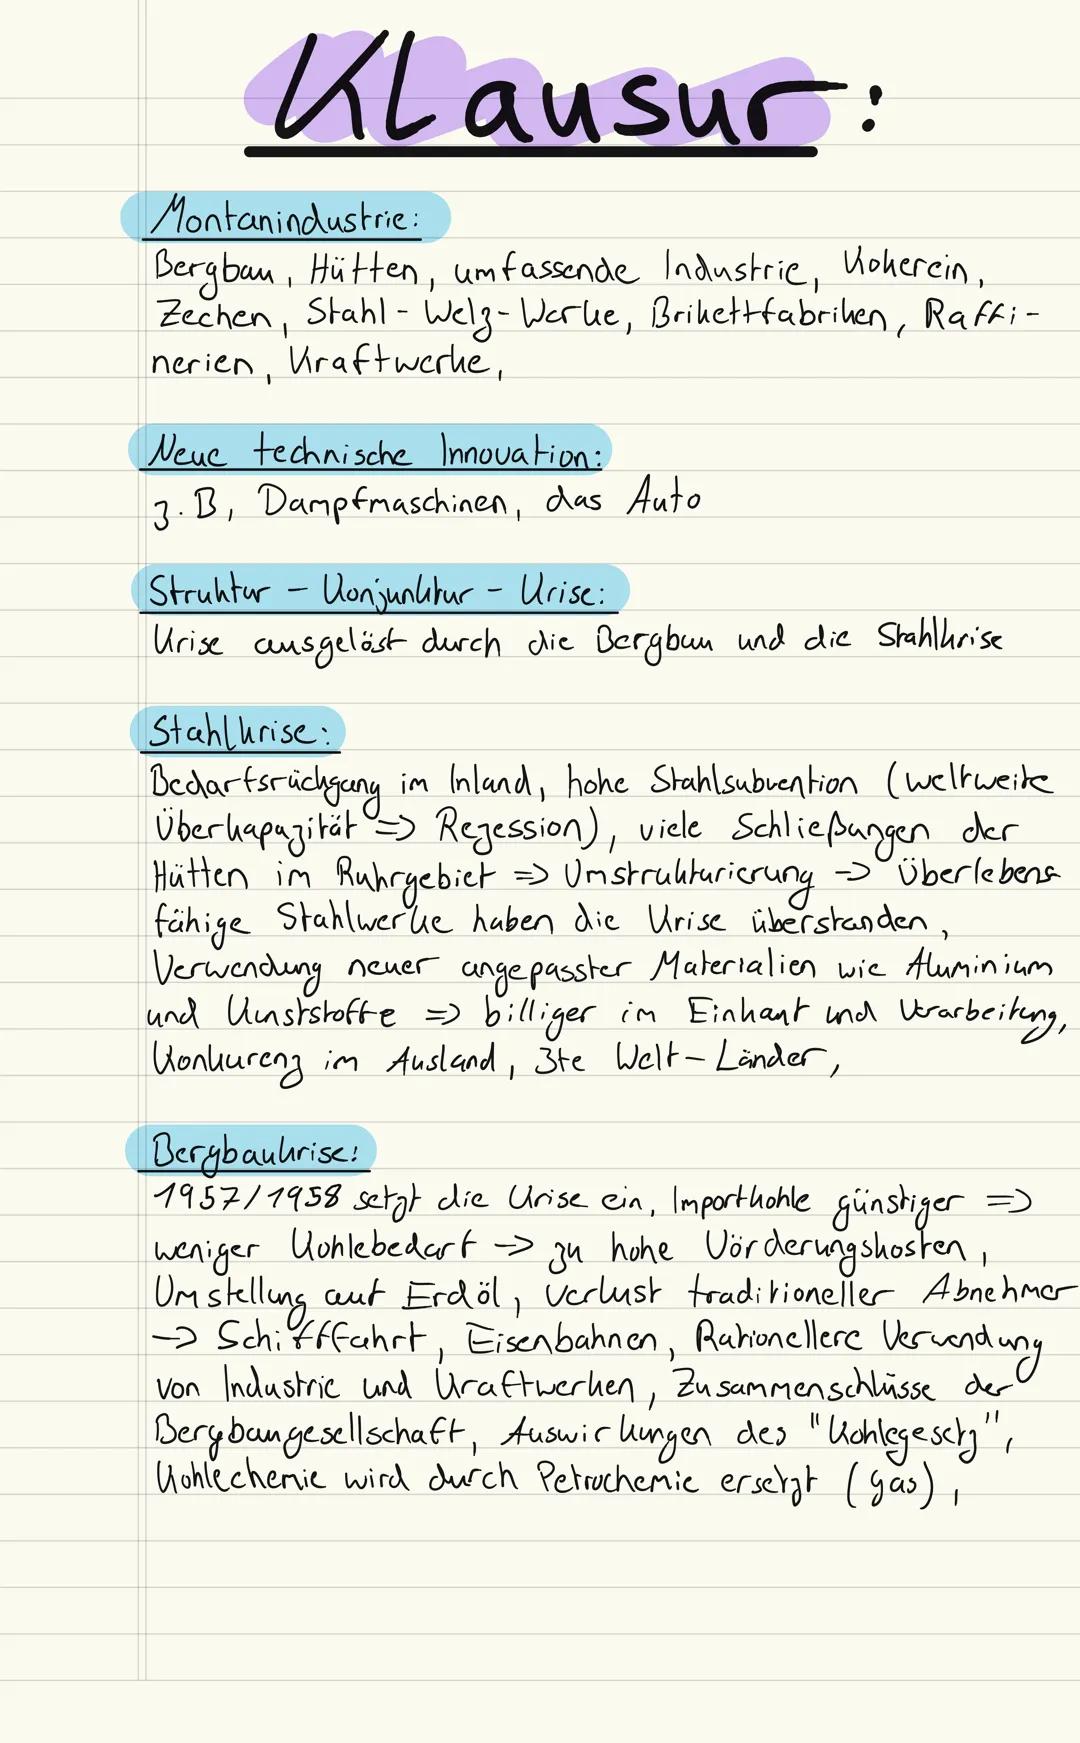 Klausur:
Montanindustrie:
Bergbau, Hütten, umfassende Industrie, Kokerein,
Zechen, Stahl-Welz-Werke, Brikettfabriken, Raffi-
nerien, Kraftwerke,
Neue technische Innovation:
z.B, Dampfmaschinen, das Auto
Struktur - Konjunktur - Krise:
Krise ausgelöst durch die Bergbau und die Stahlkrise
Stahlkrise:
Bedarfsrückgang im Inland, hohe Stahlsubvention (weltweite
Überkapazität => Rezession), viele Schließungen der
Hütten im Ruhrgebiet => Umstrukturierung -> Überlebens
fähige Stahlwerke haben die Krise überstanden,
Verwendung neuer angepasster Materialien wie Aluminium
und Kunststoffe => billiger im Einkauf und Verarbeitung,
Konkurenz im Ausland, 3te Welt-Länder,
Bergbaukrise:
1957/1958 setzt die Krise ein, Importkohle günstiger =>
weniger Kohlebedarf -> zu hohe Vörderungskosten,
Umstellung auf Erdöl, verlust traditioneller Abnehmer
-> Schifffahrt, Eisenbahnen, Rationellere Verwendung
von Industrie und Kraftwerken, Zusammenschlüsse der
Bergbaugesellschaft, Auswirkungen des "Kohlegesetz",
Kohlechemie wird durch Petrochemie ersetzt (gas),